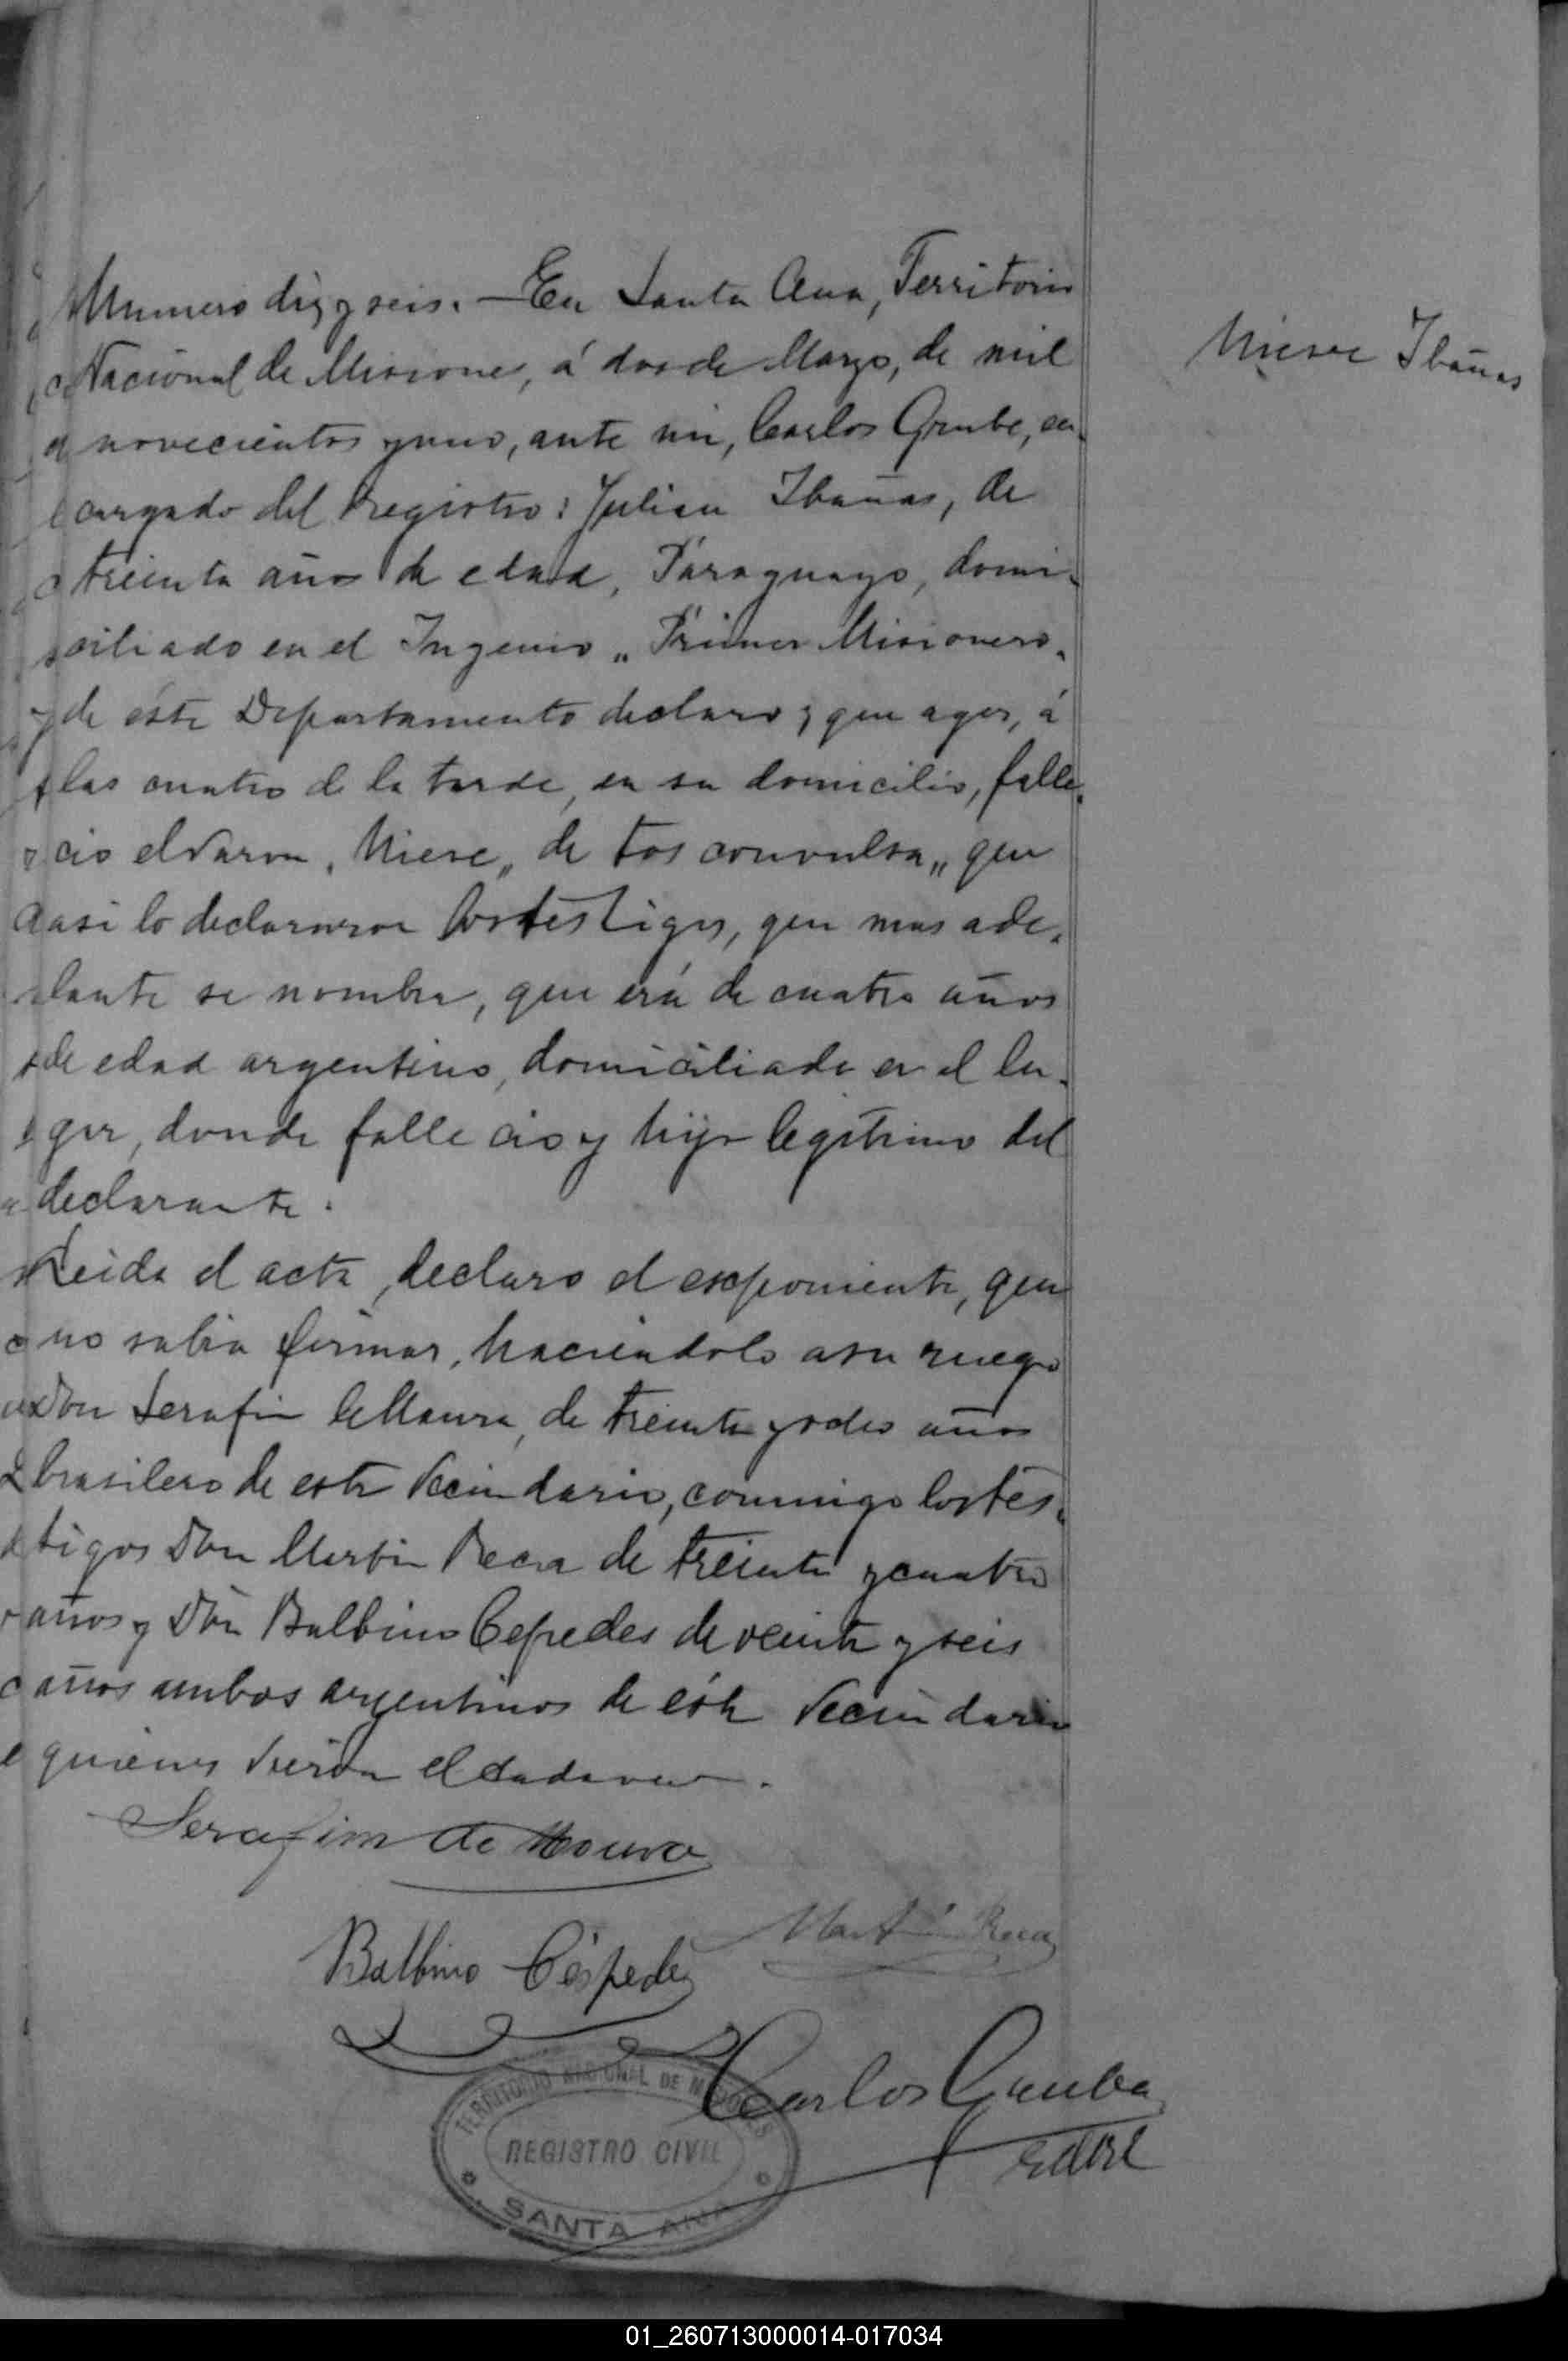 Numero diz y seis. — En Santa Ana, Territorio
Nacional de Misiones, á dos de Marzo, de mil
novecientos y uno, ante mi, Carlos Grube, en-
cargado del registro: Julian Ibañas, de
treinta años de edad, Paraguayo, domi-
ciliado en el Ingenio „Primer Misionero„
de éste Departamento declaro; que ayer, á
las cuatro de la tarde, en su domicilio, falle-
cio el varon, Nieve„ de tos convulsa„ que
asi lo declararon los testigos, que mas ade-
lante se nombra, que erá de cuatro años
de edad argentino, domiciliado en el lu-
gar, donde fallecio y hijo legitimo del
declarante.
Leida el acta, declaro el exponiente, que
no sabia firmar, haciendolo a su ruego
Don Serafin de Moura, de treinta y ocho años
brasilero de este vecindario, conmigo los tes-
tigos Don Martin Reca de treinta y cuatro
años y Don Balbino Cepedes de veinte y seis
años ambos argentinos de éste vecindario
quienes vieron el cadaver.
Nieve Ibañas
Serafim de Moura
Martin Reca
Balbino Céspedes
Carlos
TERRITORIO NACIONAL DE MISIONES
REGISTRO CIVIL
SANTA ANA
01_260713000014-017034